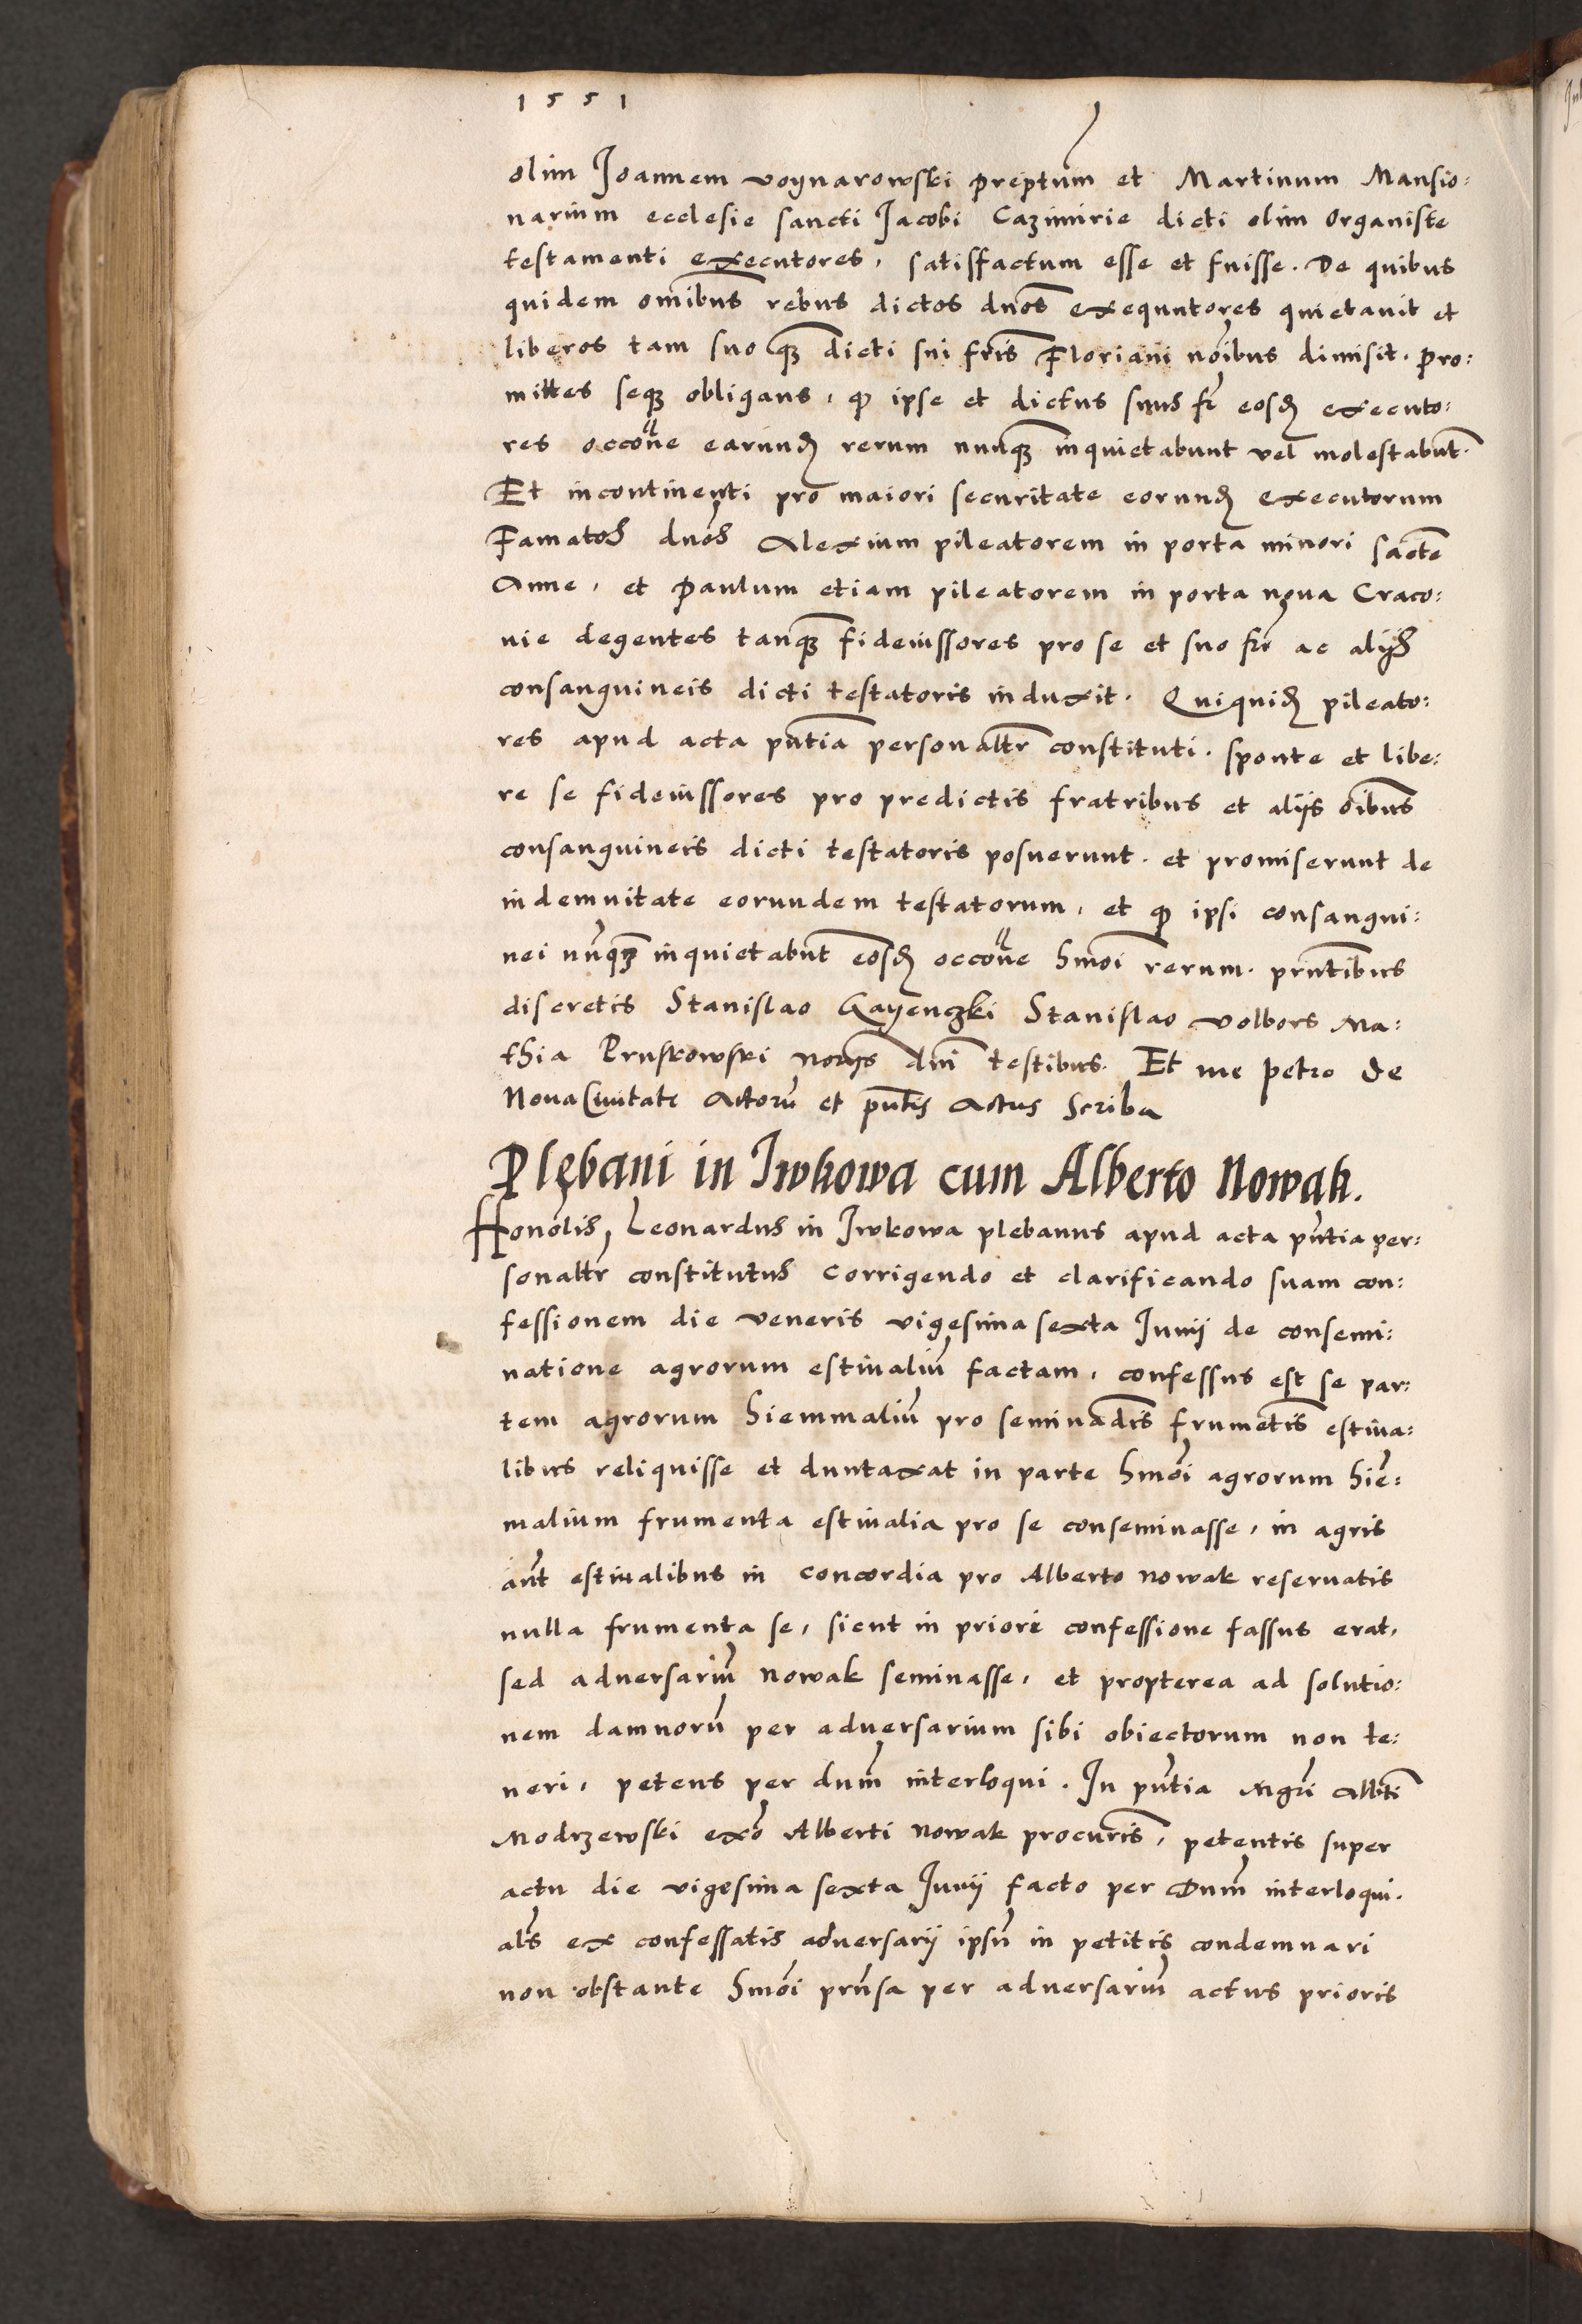 1551
olim Joannem voynarowski preptum et Martinum Mansio:
narium ecclesie sancti Jacobi Cazimirie dicti olim organiste
testamenti executores, satisfactum esse et fuisse. De quibus
quidem omnibus rebus dictos dnos exequutores quietauit et
liberos tam suo qȝ dicti sui fris Floriani noibus dimisit. pro:
mittes seqȝ obligans, qp ipse et dictus suus fr eosdꝫ executo:
res occone earundꝫ rerum nunqȝ inquietabunt vel molestabunt.
Et incontinenti pro maiori securitate eorundꝫ executorum
Famatos dnos Alexium pileatorem in porta minori sacte
Anne, et Paulum etiam pileatorem in porta noua Craco:
uie degentes tanqȝ fideiussores pro se et suo fre ac alijs
consanguineis dicti testatoris induxit. Quiquidꝫ pileato:
res apud acta pntia personaltr constituti. sponte et libe:
re se fideiussores pro predictis fratribus et aliis oibus
consanguineis dicti testatoris posuerunt. et promiserunt de
indemnitate eorundem testatorum, et qp ipsi consangui:
nei nunqȝ inquietabunt eosdꝫ occone hmoi rerum. prntibus
discretis Stanislao Gayenczki Stanislao volbors Ma:
thia Pruskowski norijs dni testibus. Et me petro de
Noua Ciuitate Actoru et pntis Actus Scriba
Plębani in Iwkowa cum Alberto Nowak.
Honolis, Leonardus in Iwkowa plebanus apud acta pntia per:
sonaltr constitutus corrigendo et clarificando suam con:
fessionem die veneris vigesima sexta Junij de consemi:
natione agrorum estiualiu factam, confessus est se par:
tem agrorum hiemmaliu pro seminadis frumetis estiua:
libus reliquisse et duntaxat in parte hmoi agrorum hie:
malium frumenta estiualia pro se conseminasse, in agris
aut estiualibus in concordia pro Alberto nowak reseruatis
nulla frumenta se, sicut in priori confessione fassus erat,
sed aduersariu nowak seminasse, et propterea ad solutio:
nem damnoru per aduersarium sibi obiectorum non te:
neri, petens per dnum interloqui. In pntia Mgri Albti
Modrzewski exo Alberti nowak procuris, petentis super
actu die vigesima sexta Junij facto per Dnum interloqui.
als ex confessatis aduersarij ipsu in petitis condemnari
non obstante hmoi prnsa per aduersariu actus prioris